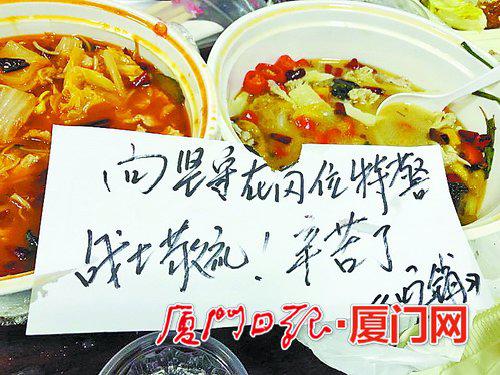 向坚守在岗位特警
战士敬礼！辛苦了
厦门日报·厦门网